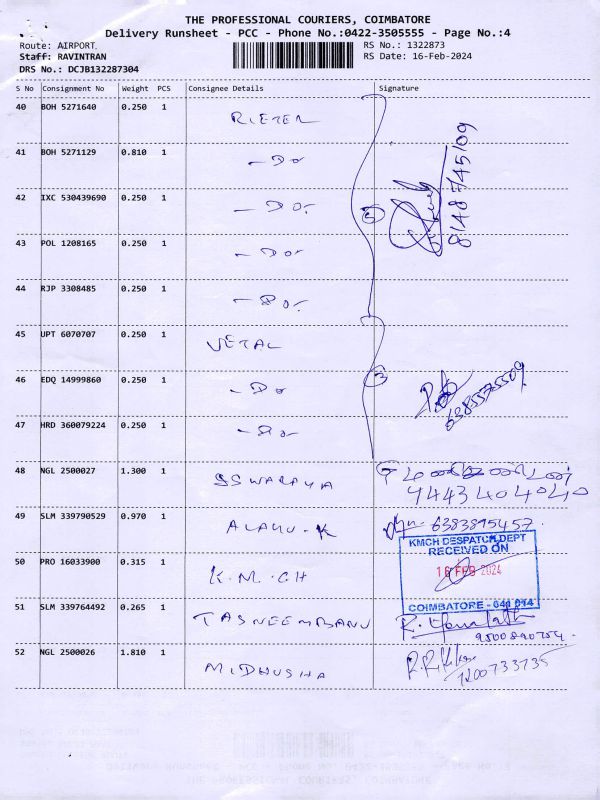 THE PROFESSIONAL COURIERS, COIMBATORE
Delivery Runsheet - PCC - Phone No.:0422-3505555 - Page No.:4
Route: AIRPORT. RS No.: 1322873
Staff: RAVINTRAN RS Date: 16-Feb-2024
DRS No.: DCJB132287304
S No Consignment No Weight PCS Consignee Details Signature
40 BOH 5271640 0.250 1 RIETER
41 BOH 5271129 0.810 1 - Do
42 IXC 530439690 0.250 1 - Do. 5 8148745109
43 POL 1208165 0.250 1 - Do.
44 RJP 3308485 0.250 1 - Do.
45 UPT 6070707 0.250 1 VETAL
46 EDQ 14999860 0.250 1 - Do 3 6385575509
47 HRD 360079224 0.250 1 - Do
48 NGL 2500027 1.300 1 SSWARAYA
9443404040
49 SLM 339790529 0.970 1 ALAGU.K 6383895457.
KMCH DESPATCH DEPT
RECEIVED ON
50 PRO 16033900 0.315 1 K.M.CH 16 FEB 2024
COIMBATORE - 641 014
51 SLM 339764492 0.265 1 TASNEEMBANU R.
9500890754.
52 NGL 2500026 1.810 1 MIDHUSHA
7200733735